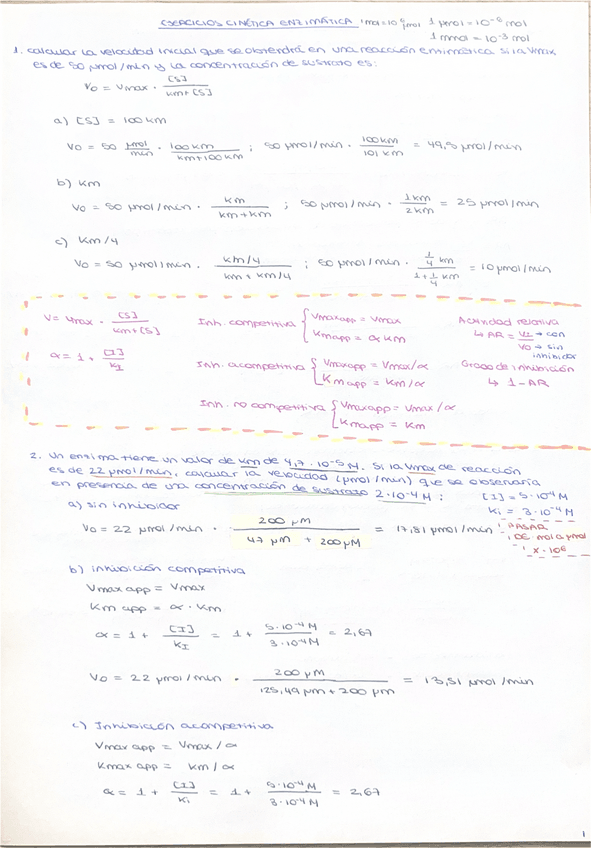 EJERCICIOS CINÉTICA ENZIMÁTICA 1 mol = 10⁶ μmol 1 μmol = 10⁻⁶ mol
1 mmol = 10⁻³ mol
1. calcular la velocidad inicial que se obtendrá en una reacción enzimática si la Vmax
es de 50 μmol/min y la concentración de sustrato es:
V₀ = Vmax · [S] / (Km+[S])
a) [S] = 100 Km
V₀ = 50 μmol/min · 100 Km / (Km+100 Km) ; 50 μmol/min · 100 Km / 101 Km = 49,5 μmol/min
b) Km
V₀ = 50 μmol/min · Km / (Km+Km) ; 50 μmol/min · 1 Km / 2 Km = 25 μmol/min
c) Km/4
V₀ = 50 μmol/min · Km/4 / (Km + Km/4) ; 50 μmol/min · 1/4 Km / (1+1/4 Km) = 10 μmol/min
V = Vmax · [S] / (Km+[S])
α = 1 + [I] / KI
Inh. competitiva { Vmaxapp = Vmax
Kmapp = α Km
Inh. acompetitiva { Vmaxapp = Vmax/α
Kmapp = Km/α
Inh. no competitiva { Vmaxapp = Vmax/α
Kmapp = Km
Actividad relativa
↳ AR = Vi → con / V₀ → sin
inhibidor
Grado de inhibición
↳ 1 - AR
2. Un enzima tiene un valor de Km de 4,7 · 10⁻⁵ M. Si la Vmax de reacción
es de 22 μmol/min, calcular la velocidad (μmol/min) que se observaría
en presencia de una concentración de sustrato 2·10⁻⁴ M : [I] = 5·10⁻⁴ M
Ki = 3·10⁻⁴ M
a) sin inhibidor
V₀ = 22 μmol/min · 200 μM / (47 μM + 200 μM) = 17,81 μmol/min
PASAR
DE mol a μmol
x · 10⁶
b) inhibición competitiva
Vmax app = Vmax
Km app = α · Km
α = 1 + [I] / KI = 1 + 5·10⁻⁴ M / 3·10⁻⁴ M = 2,67
V₀ = 22 μmol/min · 200 μM / (125,49 μM + 200 μM) = 13,51 μmol/min
c) Inhibición acompetitiva
Vmax app = Vmax / α
Kmax app = Km / α
α = 1 + [I] / Ki = 1 + 5·10⁻⁴ M / 3·10⁻⁴ M = 2,67
1